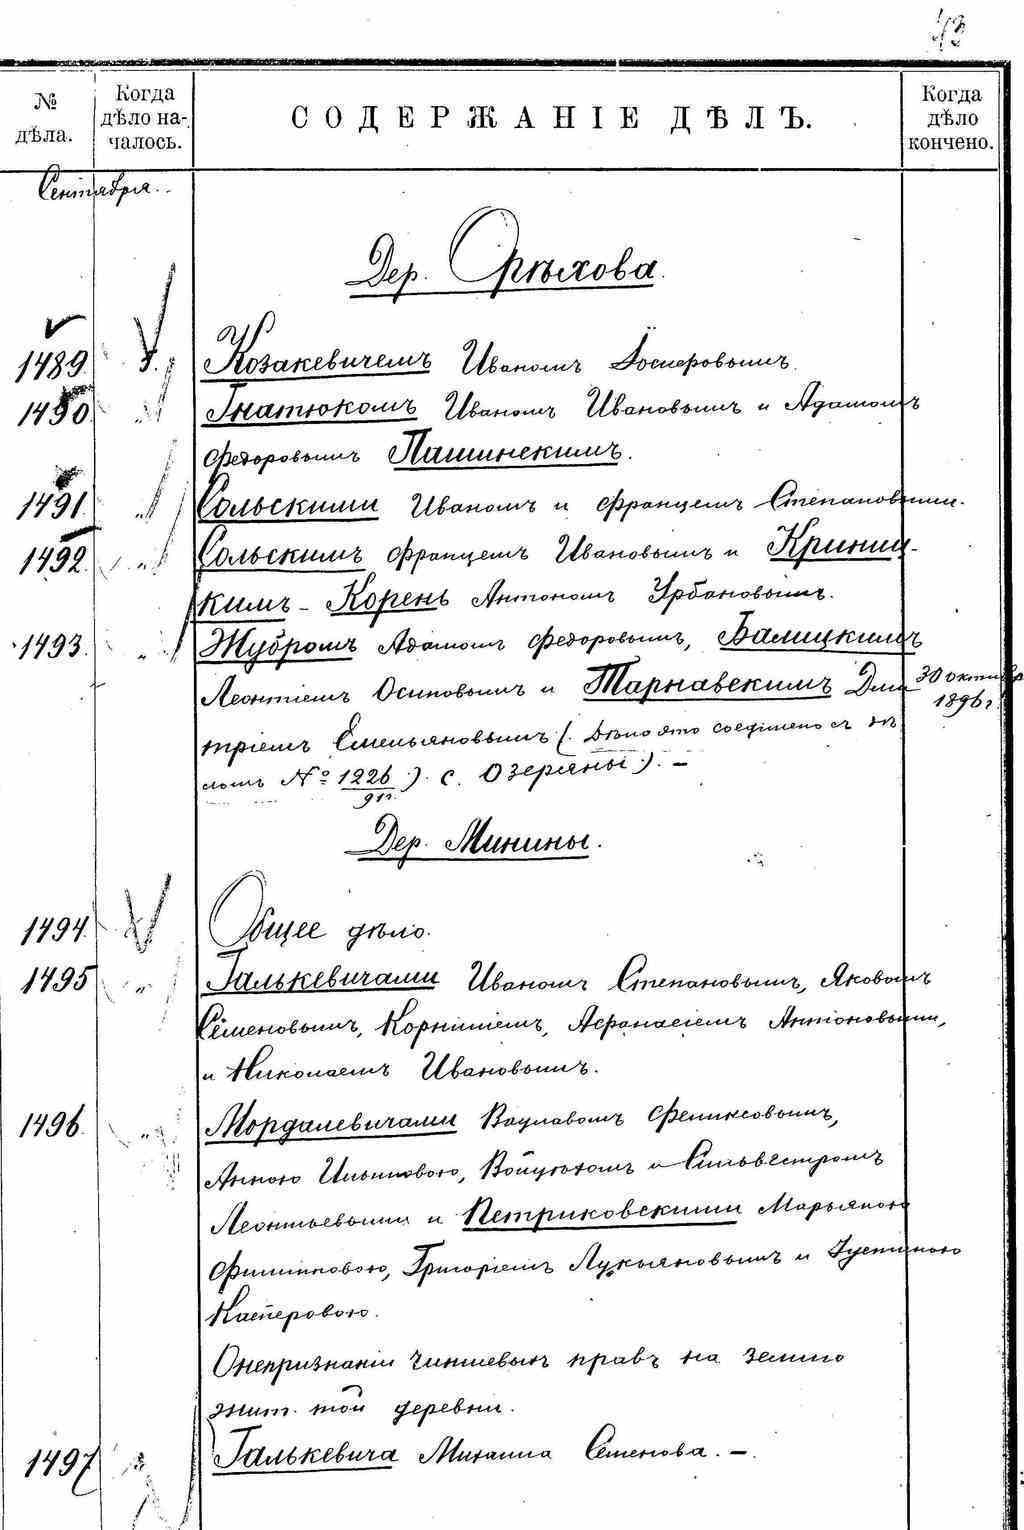 43
№ дѣла.
Когда дѣло на-
чалось.
СОДЕРЖАНІЕ ДѢЛЪ.
Когда дѣло кончено.
Сентября
Дер. Орѣхова.
1489. 5. Козакевичемъ Иваномъ Іосиеровымъ.
1490. " Гнатюкомъ Иваномъ Ивановымъ и Адамомъ
Федоровымъ Пашинскимъ.
1491. " Сольскими Иваномъ и Францемъ Степановыми.
1492. " Сольскимъ Францемъ Ивановымъ и Криниц-
кимъ-Корень Антономъ Урбановымъ.
1493. " Жубромъ Адамомъ Федоровымъ, Балицкимъ
Леонтіемъ Осиповымъ и Тарнавскимъ Дми 30 октября
тріемъ Емельяновымъ (Дѣло это соединено съ дѣ 1896 г.
ломъ № 1226/91 г.) с. Озеряны). –
Дер. Минины.
1494. Общее дѣло.
1495 " Галькевичами Иваномъ Степановымъ, Яковомъ
Семеновымъ, Корниліемъ, Афанасіемъ Антоновыми,
и Николаемъ Ивановымъ.
1496. " Мордалевичами Вацлавомъ Феликсовымъ,
Анною Ильиновою, Войцѣхомъ и Сильвестромъ
Леонтьевыми и Петриковскими Марьяною
Филипповою, Григоріемъ Лукьяновымъ и Густиною
Касперовою.
О непризнаніи чиншевыхъ правъ на землю
жит. той деревни.
1497 " Галькевича Михаила Семенова. –.